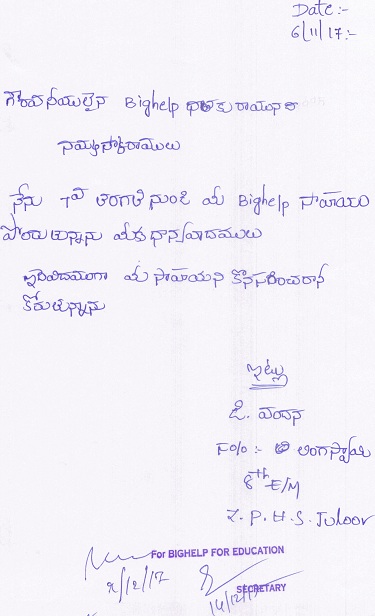 Date:-
6/11/17:-
గౌరవనీయులైన Bighelp
నమస్కారాములు
నేను 7వ తరగతి నుండి మీ Bighelp సాహయం
పొందుతున్నాను మీకు ధాన్యవాదములు
ఇదేవిదముగా మీ సాహయని కొనసాగించరానీ
కోరుతున్నాను
ఇట్లు
జి. వందన
లింగస్వామి
8th E/M
Z. P. H. S. Juloor
For BIGHELP FOR EDUCATION
2/12/17
SECRETARY
14/12/17